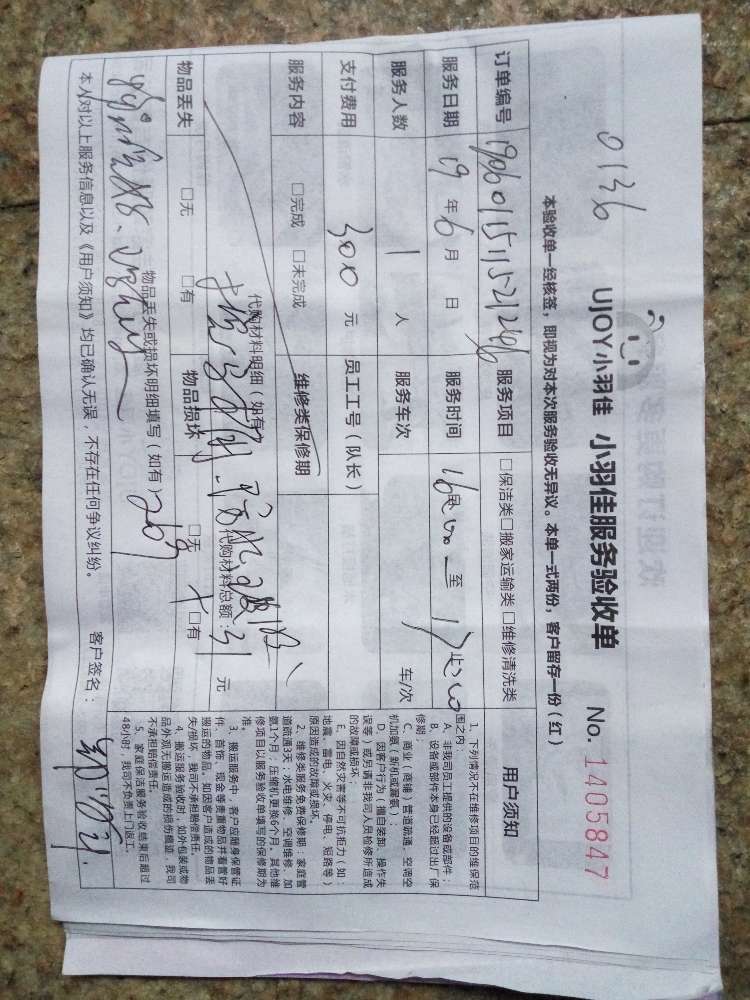 0136
UJOY小羽佳 小羽佳服务验收单 No. 1405847
本验收单一经核签，即视为对本次服务验收无异议。本单一式两份，客户留存一份（红）
订单编号 服务项目 □保洁类□搬家运输类 □维修清洗类
服务日期 19年6月 日 服务时间 至
服务人数 1 人 服务车次 车/次
支付费用 300 元 员工工号（队长）
服务内容 □完成 □未完成 维修类保修期
代购材料明细（如有
代购材料总额：31 元
物品丢失 □无 □有 物品损坏 □无 □有
物品丢失或损坏明细填写（如有）
本人对以上服务信息以及《用户须知》均已确认无误，不存在任何争议纠纷。 客户签名：
用户须知
1、下列情况不在维修项目的维保范
围之内：
A、非我司员工提供的设备或部件；
B、设备或部件本身已经超过出厂保
修期；
C、商业（商铺）管道疏通、空调空
机加氨（新机或漏氨）
D、因客户行为（擅自装卸、操作失
误等）或另请非我司人员检修所造成
的故障或损坏；
E、因自然灾害等不可抗拒力（如：
地震、雷电、火灾、停电、短路等）
原因造成的故障或损坏。
2、维修类服务免费保修期：家庭管
道疏通3天；水电维修、空调维修、加
氨1个月；压缩机更换6个月，其他维
修项目以服务验收单填写的保修期为
准。
3、搬运服务中，客户应随身保管证
件、首饰、现金等贵重物品并看管好
搬运的物品。如因客户造成的物品丢
失/损坏，我司不承担赔偿责任。
4、搬运服务验收时，如外包装或物
品外观无搬运造成的损伤痕迹，我司
不承担赔偿责任。
5、家庭保洁服务验收结束后超过
48小时，我司不负责上门返工。